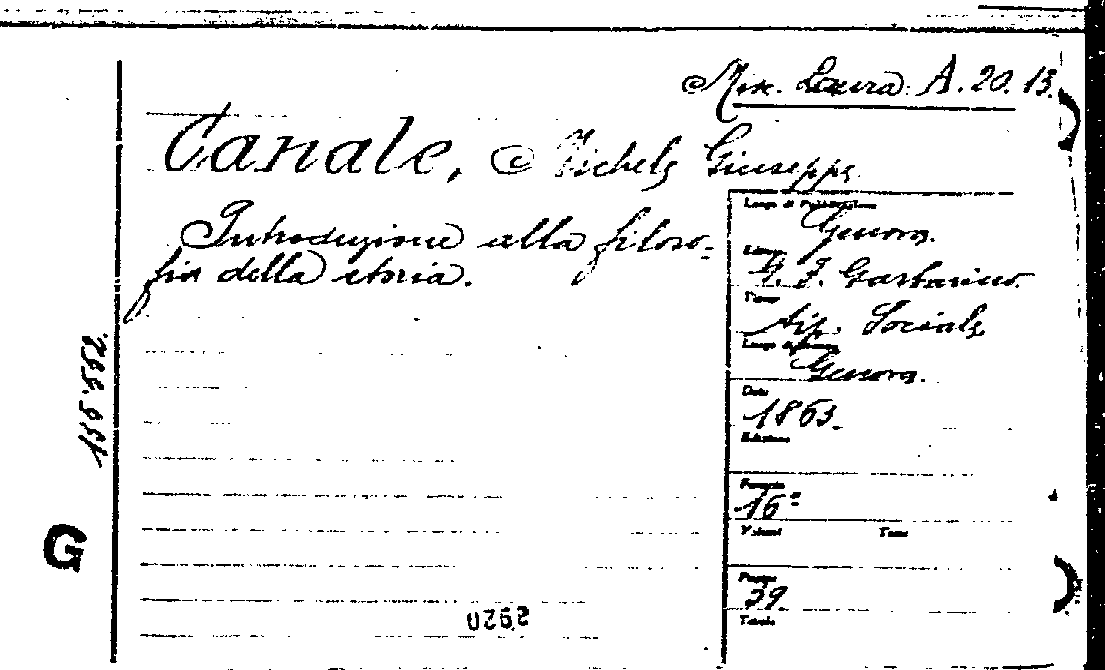 Misc. Laura A. 20. 13.
Canale, Michele Giuseppe
Introduzione alla filoso-
fia della storia.
Luogo di Pubblicazione
Genova.
G. F. Garbarino
Tip. Sociale
Luogo di stampa
Genova.
Data
1863.
Edizione
Formato
16°
Volumi Tomo
Pagine
39.
Tavole
155.992
G
2920